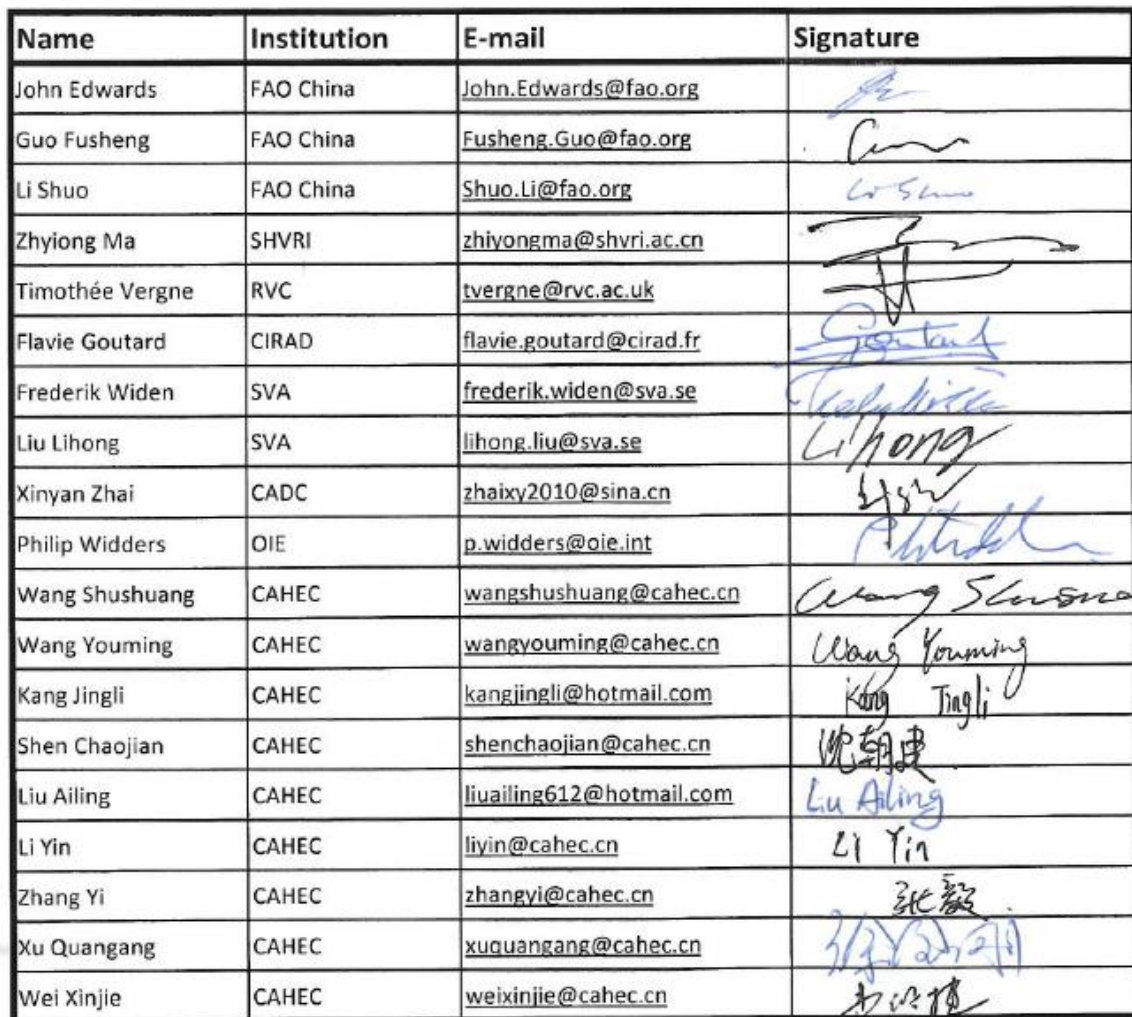 Name Institution E-mail Signature
John Edwards FAO China John.Edwards@fao.org
Guo Fusheng FAO China Fusheng.Guo@fao.org
Li Shuo FAO China Shuo.Li@fao.org Li Shuo
Zhyiong Ma SHVRI zhiyongma@shvri.ac.cn
Timothée Vergne RVC tvergne@rvc.ac.uk
Flavie Goutard CIRAD flavie.goutard@cirad.fr Goutard
Frederik Widen SVA frederik.widen@sva.se
Liu Lihong SVA lihong.liu@sva.se Lihong
Xinyan Zhai CADC zhaixy2010@sina.cn
Philip Widders OIE p.widders@oie.int
Wang Shushuang CAHEC wangshushuang@cahec.cn Wang
Wang Youming CAHEC wangyouming@cahec.cn Wang Youming
Kang Jingli CAHEC kangjingli@hotmail.com Kang Jingli
Shen Chaojian CAHEC shenchaojian@cahec.cn 沈朝建
Liu Ailing CAHEC liuailing612@hotmail.com Liu Ailing
Li Yin CAHEC liyin@cahec.cn Li Yin
Zhang Yi CAHEC zhangyi@cahec.cn 张毅
Xu Quangang CAHEC xuquangang@cahec.cn
Wei Xinjie CAHEC weixinjie@cahec.cn